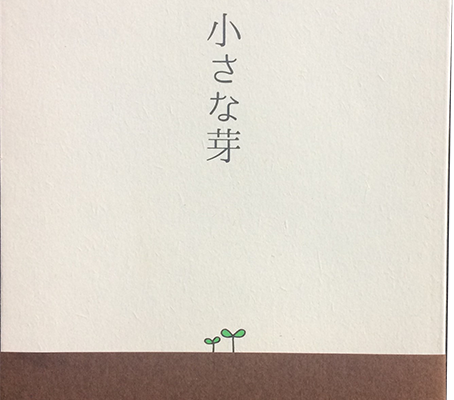 小さな芽